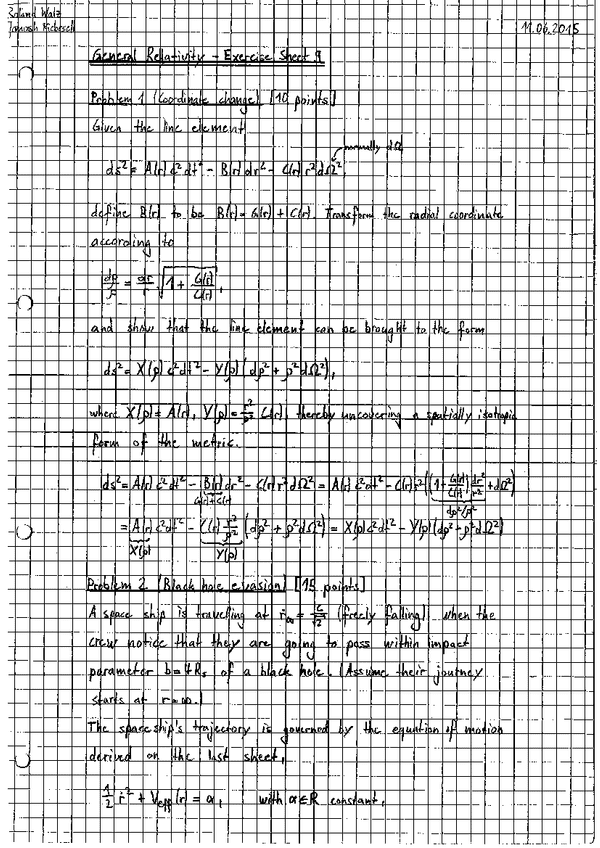 Roland Walz
11.06.2015
General Relativity – Exercise Sheet 9
Problem 1 (Coordinate change) [10 points]
Given the line element
normally dΩ
ds² = A(r) c²dt² − B(r) dr² − C(r) r² dΩ²,
define B(r) to be B(r) = G(r) + C(r). Transform the radial coordinate
according to
dρ/ρ = dr/r √(1 + G(r)/C(r)),
and show that the line element can be brought to the form
ds² = X(ρ) c²dt² − Y(ρ) (dρ² + ρ² dΩ²),
where X(ρ) = A(r), Y(ρ) = r²/ρ² C(r), thereby uncovering a spatially isotropic
form of the metric.
ds² = A(r) c²dt² − B(r) dr² − C(r) r² dΩ² = A(r) c²dt² − C(r) r² ((1 + G(r)/C(r)) dr²/r² + dΩ²)
G(r)+C(r) dρ²/ρ²
= A(r) c²dt² − C(r) r²/ρ² (dρ² + ρ² dΩ²) = X(ρ) c²dt² − Y(ρ) (dρ² + ρ² dΩ²)
X(ρ) Y(ρ)
Problem 2 (Black hole evasion) [15 points]
A space ship is travelling at ṙ∞ = c/√2 (freely falling) when the
crew notice that they are going to pass within impact
parameter b = 4Rs of a black hole. (Assume their journey
starts at r = ∞.)
The spaceship's trajectory is governed by the equation of motion
derived on the last sheet,
1/2 ṙ² + Veff(r) = α, with α ∈ ℝ constant,